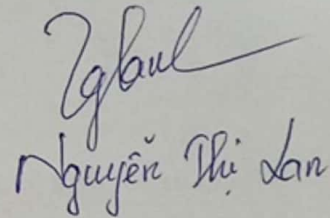 Nguyễn Thị Lan